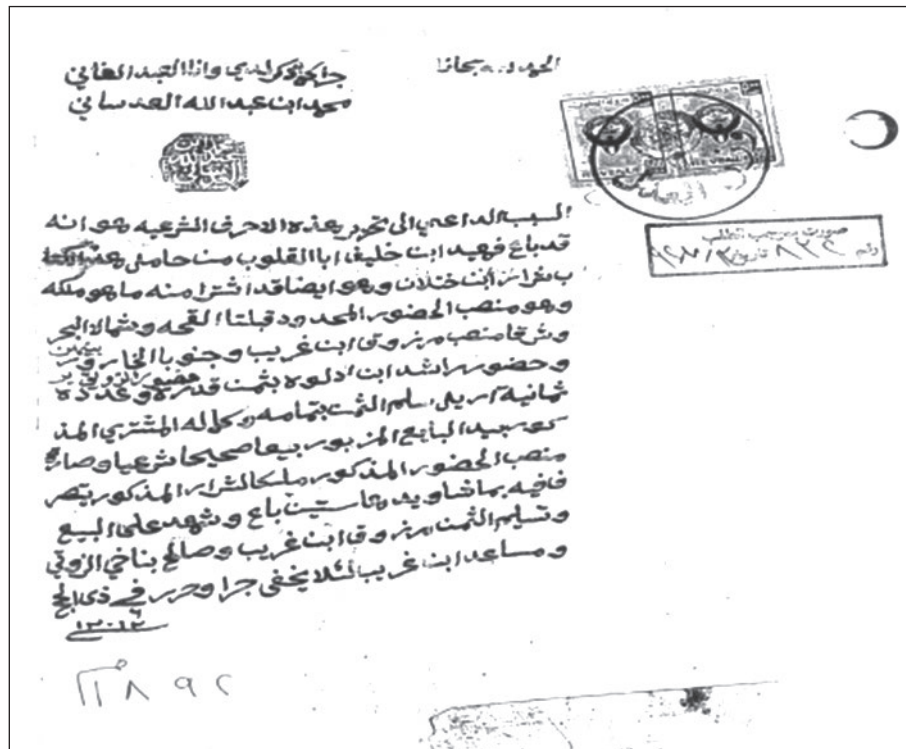 الحمد لله سبحانه
جرا كما ذكر لدي وانا العبد الفاني
محمد ابن عبد الله العدساني
REVENUE REVENUE
صورت بموجب الطلب
رقم ٨٢٤ تاريخ
السبب الداعي الى تحرير هذه الاحرف الشرعيه هو انه
قد باع فهيد ابن خليف ابا القلوب من حامل هذا الكتاب
شرار ابن ختلان وهو ايضا قد اشترا منه ما هو ملكه
وهو منصب الحضور المحدود قبلتا القحه وشمالا البحر
وشرقا منصب مرزوق ابن غريب وجنوبا الخارو
بينهن
وحضور راشد ابن ادلوه بثمن قدره وعدده
حضور الزوقي
ثمانية آريل اسلم الثمن بتمامه وكماله المشتري المذ
كور بيد البايع المزبور بيعا صحيحا شرعيا وصار
منصب الحضور المذكور ملكا لشرار المذكور يتصر
ف فيه بما شاو يد متا ستين باع وشهد على البيع
وتسلم الثمن مرزوق ابن غريب وصالح بناخي الزوقي
ومساعد ابن غريب لئلا يخفى جرا وحرر في ذي الحج
١٣٠١٢
١١٨٩٢